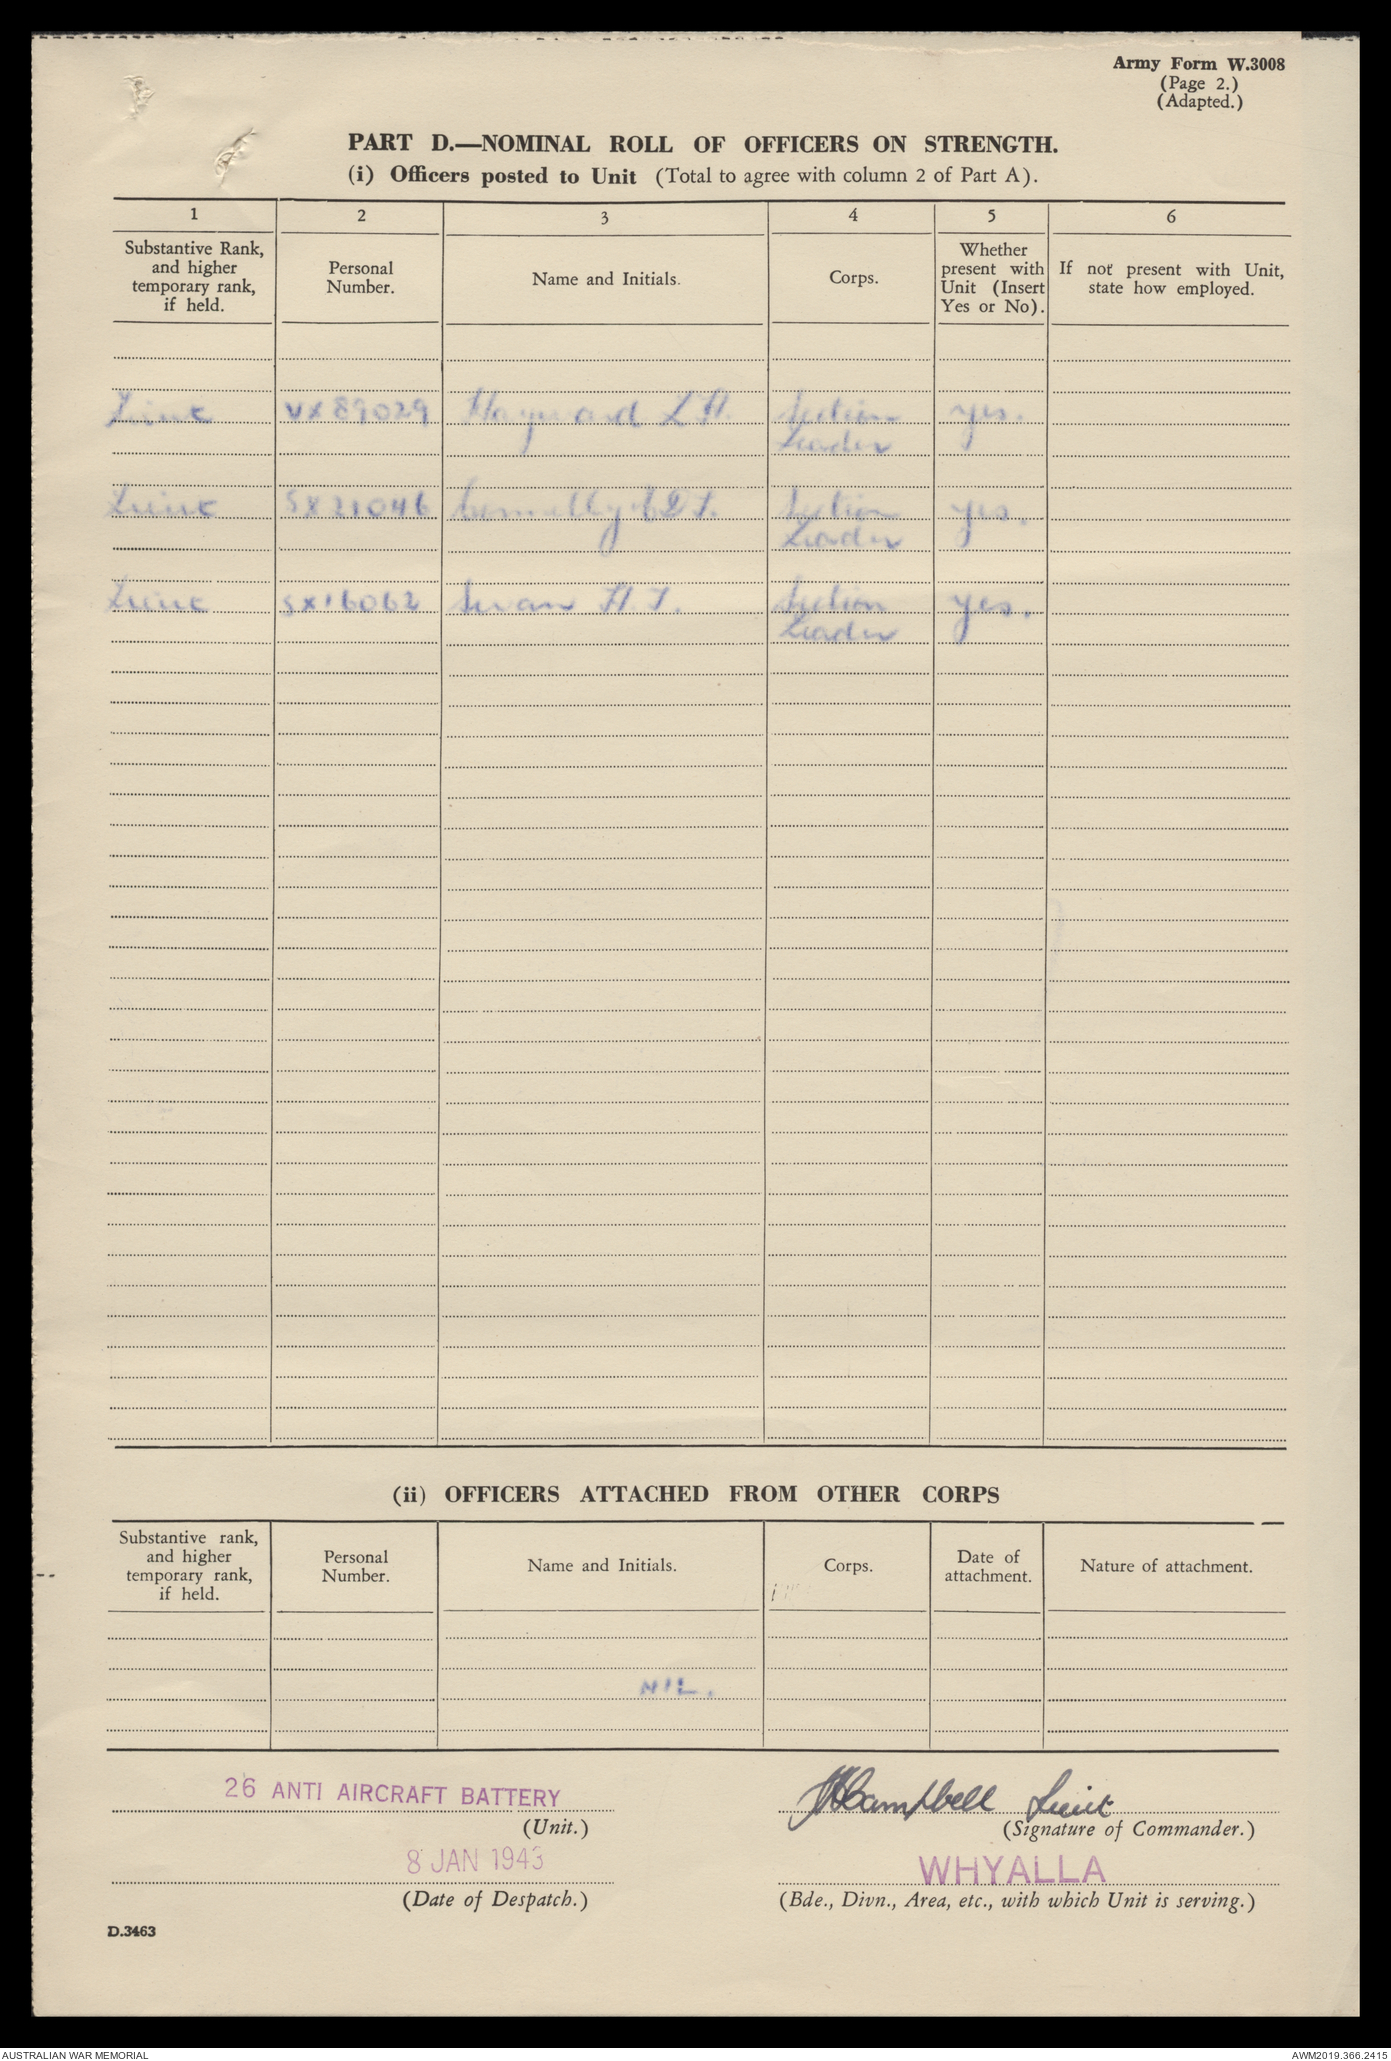 Army Form W.3008
(Page 2.)
(Adapted.)
PART D.—NOMINAL ROLL OF OFFICERS ON STRENGTH.
(i) Officers posted to Unit (Total to agree with column 2 of Part A).
1 2 3 4 5 6
Substantive Rank, and higher temporary rank, if held. Personal Number. Name and Initials. Corps. Whether present with Unit (Insert Yes or No). If not present with Unit, state how employed.
Lieut VX89029 Hayward L.H. Section yes.
Leader
Lieut SX21046 Section yes.
Leader
Lieut SX16062 Swan H.T. Section yes.
Leader
(ii) OFFICERS ATTACHED FROM OTHER CORPS
Substantive rank, and higher temporary rank, if held. Personal Number. Name and Initials. Corps. Date of attachment. Nature of attachment.
NIL.
26 ANTI AIRCRAFT BATTERY
Campbell Lieut
(Unit.)
(Signature of Commander.)
8 JAN 1943
WHYALLA
(Date of Despatch.)
(Bde., Divn., Area, etc., with which Unit is serving.)
D.3463
AUSTRALIAN WAR MEMORIAL
AWM2019.366.2415